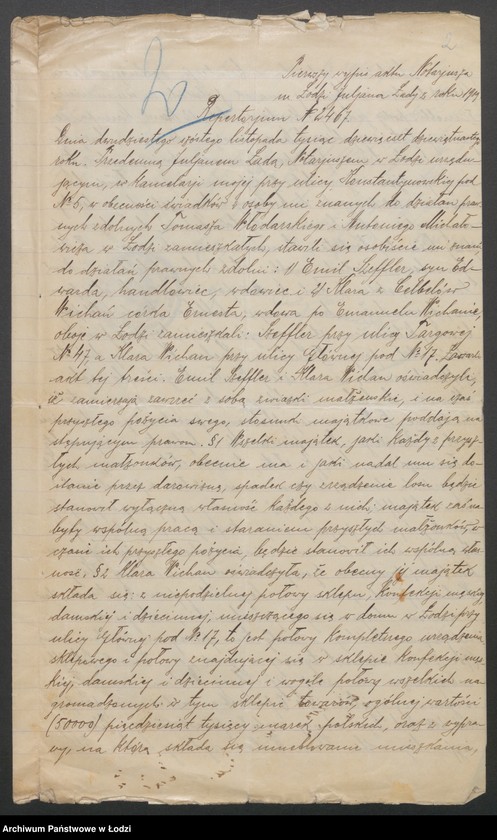 2
Pierwszy wypis aktu Notarjusza
w Łodzi Juljana Łady z roku 1919
Repertorjum № 2467.
Dnia dwudziestego szóstego listopada tysiąc dziewięćset dziewiętnastego
roku. Przedemną Juljanem Ładą, Notarjuszem w Łodzi urzędu-
jącym, w Kancelarji mojej przy ulicy Konstantynowskiej pod
№ 5, w obecności świadków osobiście mi znanych do działań praw-
nych zdolnych Tomasza Włodarskiego i Antoniego Michało-
wicza w Łodzi zamieszkałych, stawili się osobiście mi znani
do działań prawnych zdolni: 1) Emil Steffler, syn Ed-
warda, handlowiec, wdowiec i 2) Klara z
Wichan córka Ernesta, wdowa po Emanuelu Wichanie,
oboje w Łodzi zamieszkali: Steffler przy ulicy Targowej
№ 47, a Klara Wichan przy ulicy Głównej pod № 17. Zawarli
akt tej treści. Emil Steffler i Klara Wichan oświadczyli,
iż zamierzają zawrzeć z sobą związki małżeńskie, i na czas
przyszłego pożycia swego, stosunki majątkowe poddają na-
stępującym prawom. §1 Wszelki majątek, jaki każdy z przysz-
łych małżonków, obecnie ma i jaki nadal mu się do-
stanie przez darowiznę, spadek czy zrządzenie losu będzie
stanowił wyłączną własność każdego z nich; majątek zaś na-
byty wspólną pracą i staraniem przyszłych małżonków, w
czasie ich przyszłego pożycia, będzie stanowił ich wspólną włas-
ność. §2 Klara Wichan oświadczyła, że obecny jej majątek
składa się: z niepodzielnej połowy sklepu, Konfekcji męzkiej,
damskiej i dziecinnej, mieszczącego się w domu w Łodzi przy
ulicy Głównej pod № 17, to jest połowy kompletnego urządzenia
sklepowego i połowy znajdującej się w sklepie Konfekcji męz-
kiej, damskiej i dziecinnej i wogóle połowy wszelkich na-
gromadzonych w tym sklepie towarów, ogólnej wartości
(50000) pięćdziesiąt tysięcy marek polskich, oraz z wypra-
wy, na którą składa się umeblowanie mieszkania,
Archiwum Państwowe w Łodzi